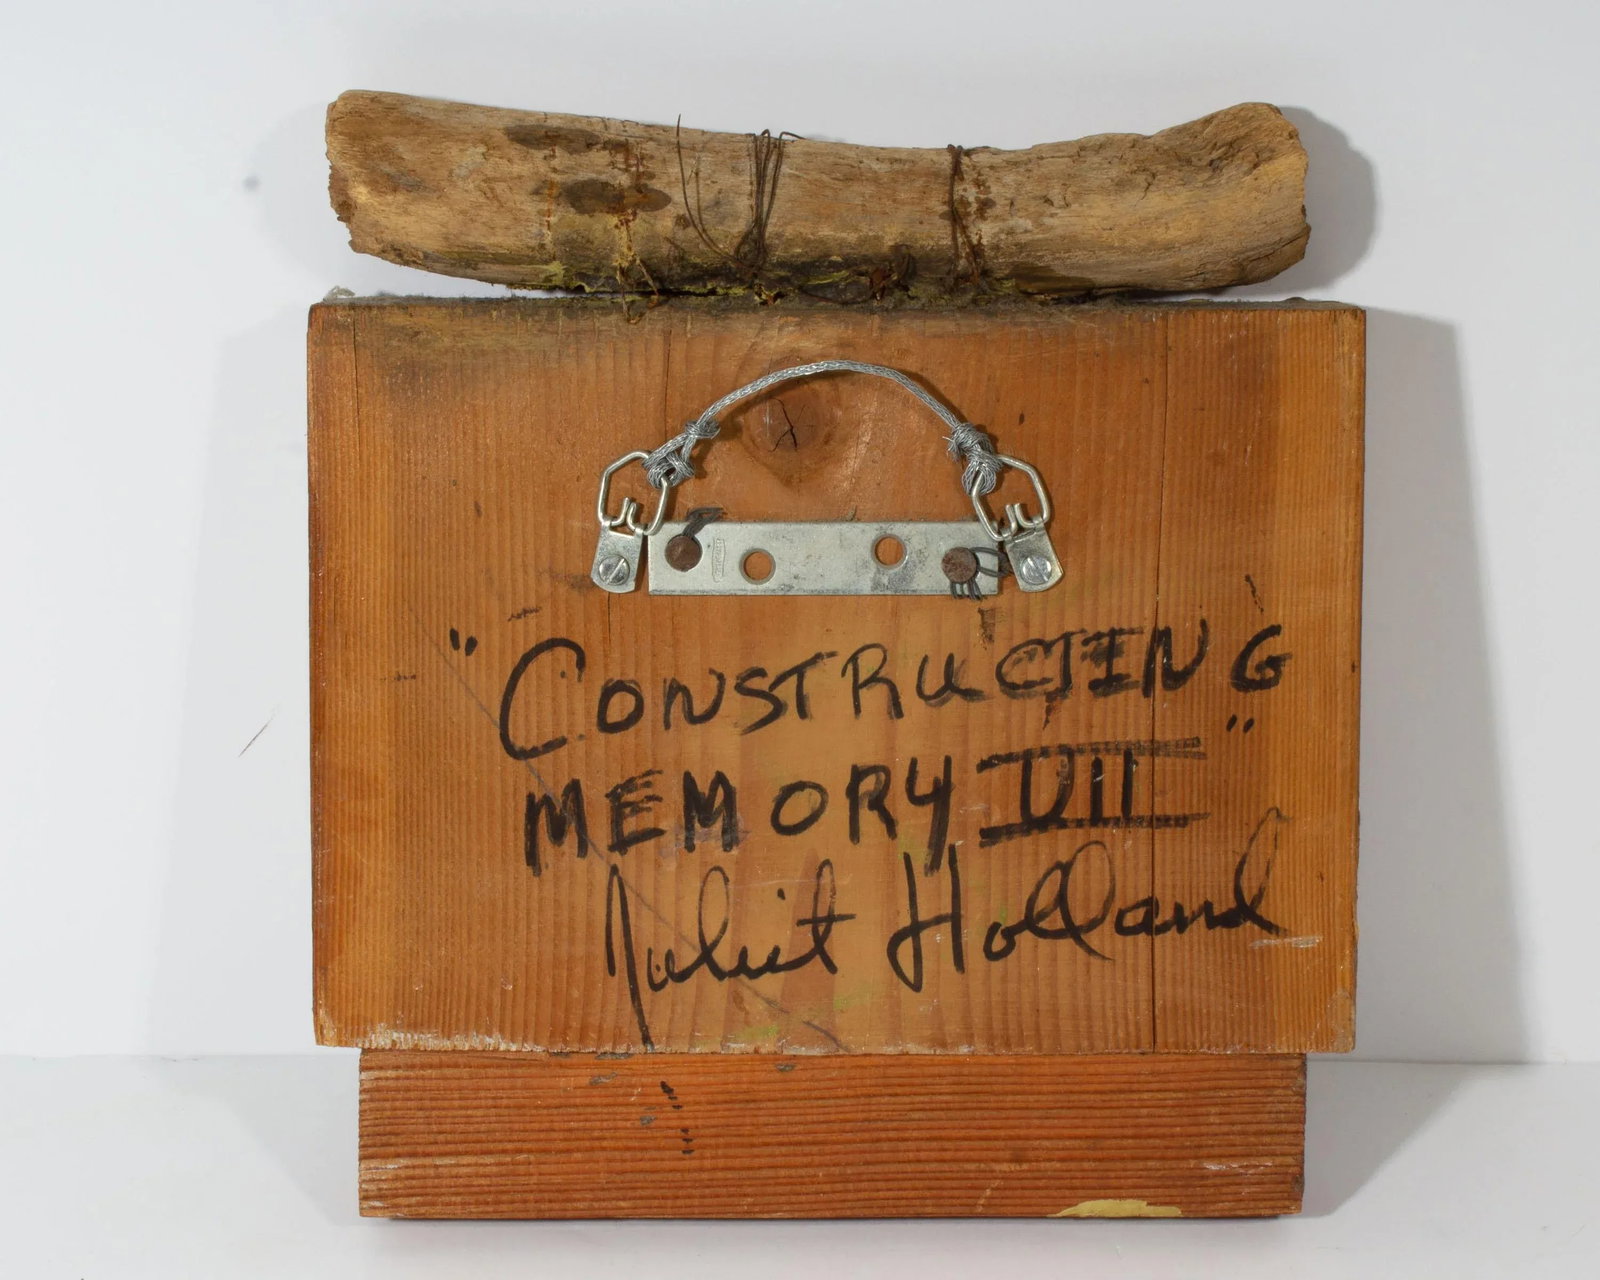 "CONSTRUCTING
MEMORY VII"
Juliet Holland